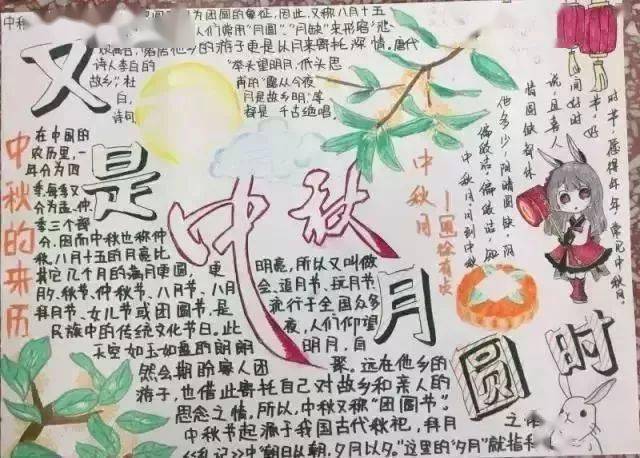 又是中秋月圆时
为团圆的象征,因此,又称八月十五
人们常用“月圆”、“月缺”来形容“悲
他乡的游子更是以月来寄托深情。唐代
诗人李白的
“举头望明月,低头思
故乡”,杜
甫的“露从今夜
白,
月是故乡明”等
诗句
都是千古绝唱。
中秋的来历
在中国的
农历里,一
年分为四
季,每季又
分为孟、仲、
季三个部
分,因而中秋也称仲
秋。八月十五的月亮比
其它几个月的满月更圆,更
明亮,所以又叫做
月夕、秋节、仲秋节、八月节、八月
会、追月节、玩月节、
拜月节、女儿节或团圆节,是
流行于全国众多
民族中的传统文化节日。此
夜,人们仰望
天空如玉如盘的朗朗
明月,自
然会期盼家人团
聚。远在他乡的
游子,也借此寄托自己对故乡和亲人的
思念之情。所以,中秋又称“团圆节”。
中秋节起源于我国古代秋祀、拜月
记》中“朝日以朝,夕月以夕。”这里的“夕月”就指
中秋月
中秋月。月到中秋
偏皎洁。偏皎洁,知
他多少,阴晴圆缺。阴
晴圆缺都休
说,且喜人
间好时
节。好
时节,愿得年年,常见中秋月。